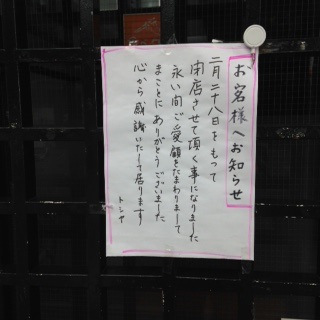 お客様へお知らせ
二月二十八日をもって
閉店させて頂く事になりました
永い間ご愛顧をたまわりまして
まことにありがとうございました
心から感謝いたして居ります
トシヤ